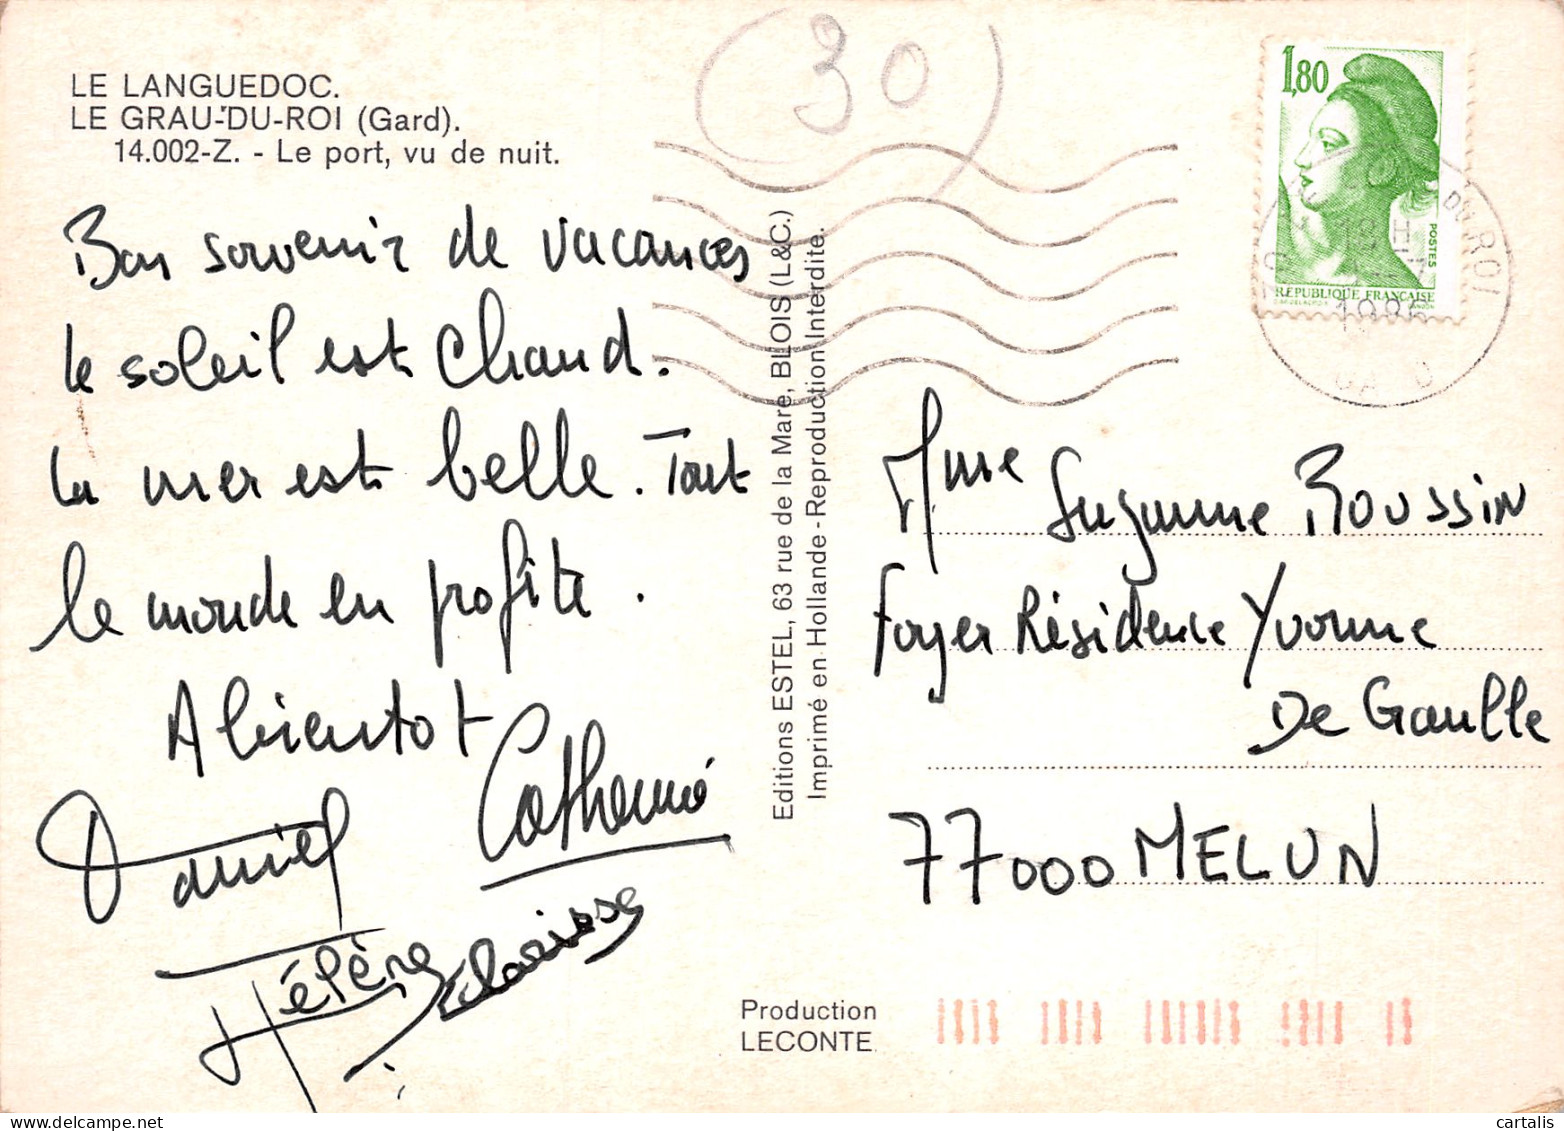 (30)
LE LANGUEDOC.
LE GRAU-DU-ROI (Gard).
14.002-Z. - Le port, vu de nuit.
Bon souvenir de vacances
le soleil est chaud.
la mer est belle. Tout
le monde en profite.
A bientot
Catherine
Daniel
Hélène Clarisse
Editions ESTEL, 63 rue de la Mare, BLOIS (L&C.)
Imprimé en Hollande - Reproduction Interdite.
1,80
POSTES
REPUBLIQUE FRANÇAISE
DU ROI
18H
1986
Mme Suzanne ROUSSIN
Foyer Résidence Yvonne
De Gaulle
77000 MELUN
Production
LECONTE
cartalis